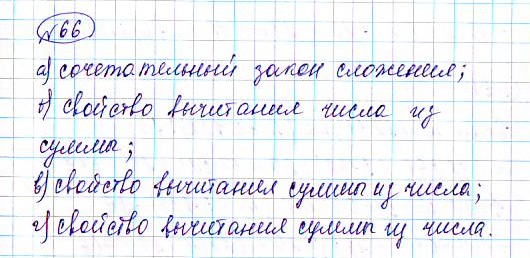 №66
а) сочетательный закон сложения;
б) свойство вычитания числа из
суммы;
в) свойство вычитания суммы из числа;
г) свойство вычитания суммы из числа.